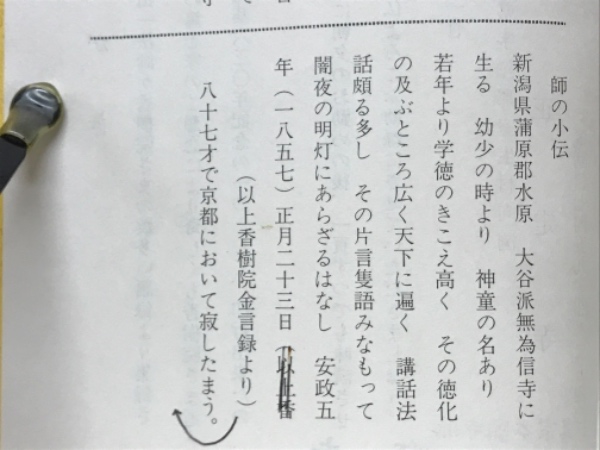 師の小伝
新潟県蒲原郡水原　大谷派無為信寺に
生る　幼少の時より　神童の名あり
若年より学徳のきこえ高く　その徳化
の及ぶところ広く天下に遍く　講話法
話頗る多し　その片言隻語みなもって
闇夜の明灯にあらざるはなし　安政五
年（一八五七）正月二十三日（以上香
（以上香樹院金言録より）
八十七才で京都において寂したまう。